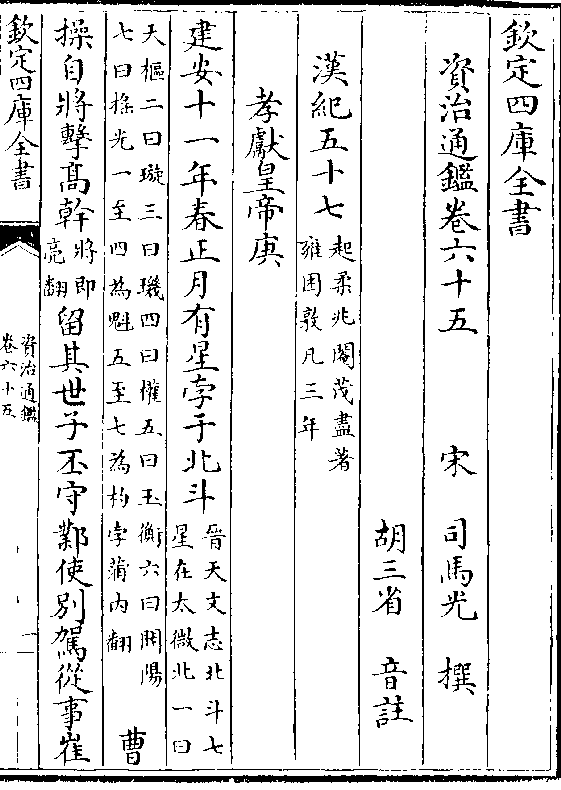 欽定四庫全書
資治通鑑卷六十五
宋 司馬光 撰
胡三省 音註
漢紀五十七起柔兆閹茂盡著
雍困敦凡三年
孝獻皇帝庚
建安十一年春正月有星孛于北斗晉天文志北斗七
星在太微北一曰
天樞二曰璇三曰璣四曰權五曰玉衡六曰開陽
七曰搖光一至四為魁五至七為杓孛蒲内翻
曹
操自將擊高幹將即
亮翻
留其世子丕守鄴使别駕從事崔
欽定四庫全書
資治通鑑
卷六十五
一